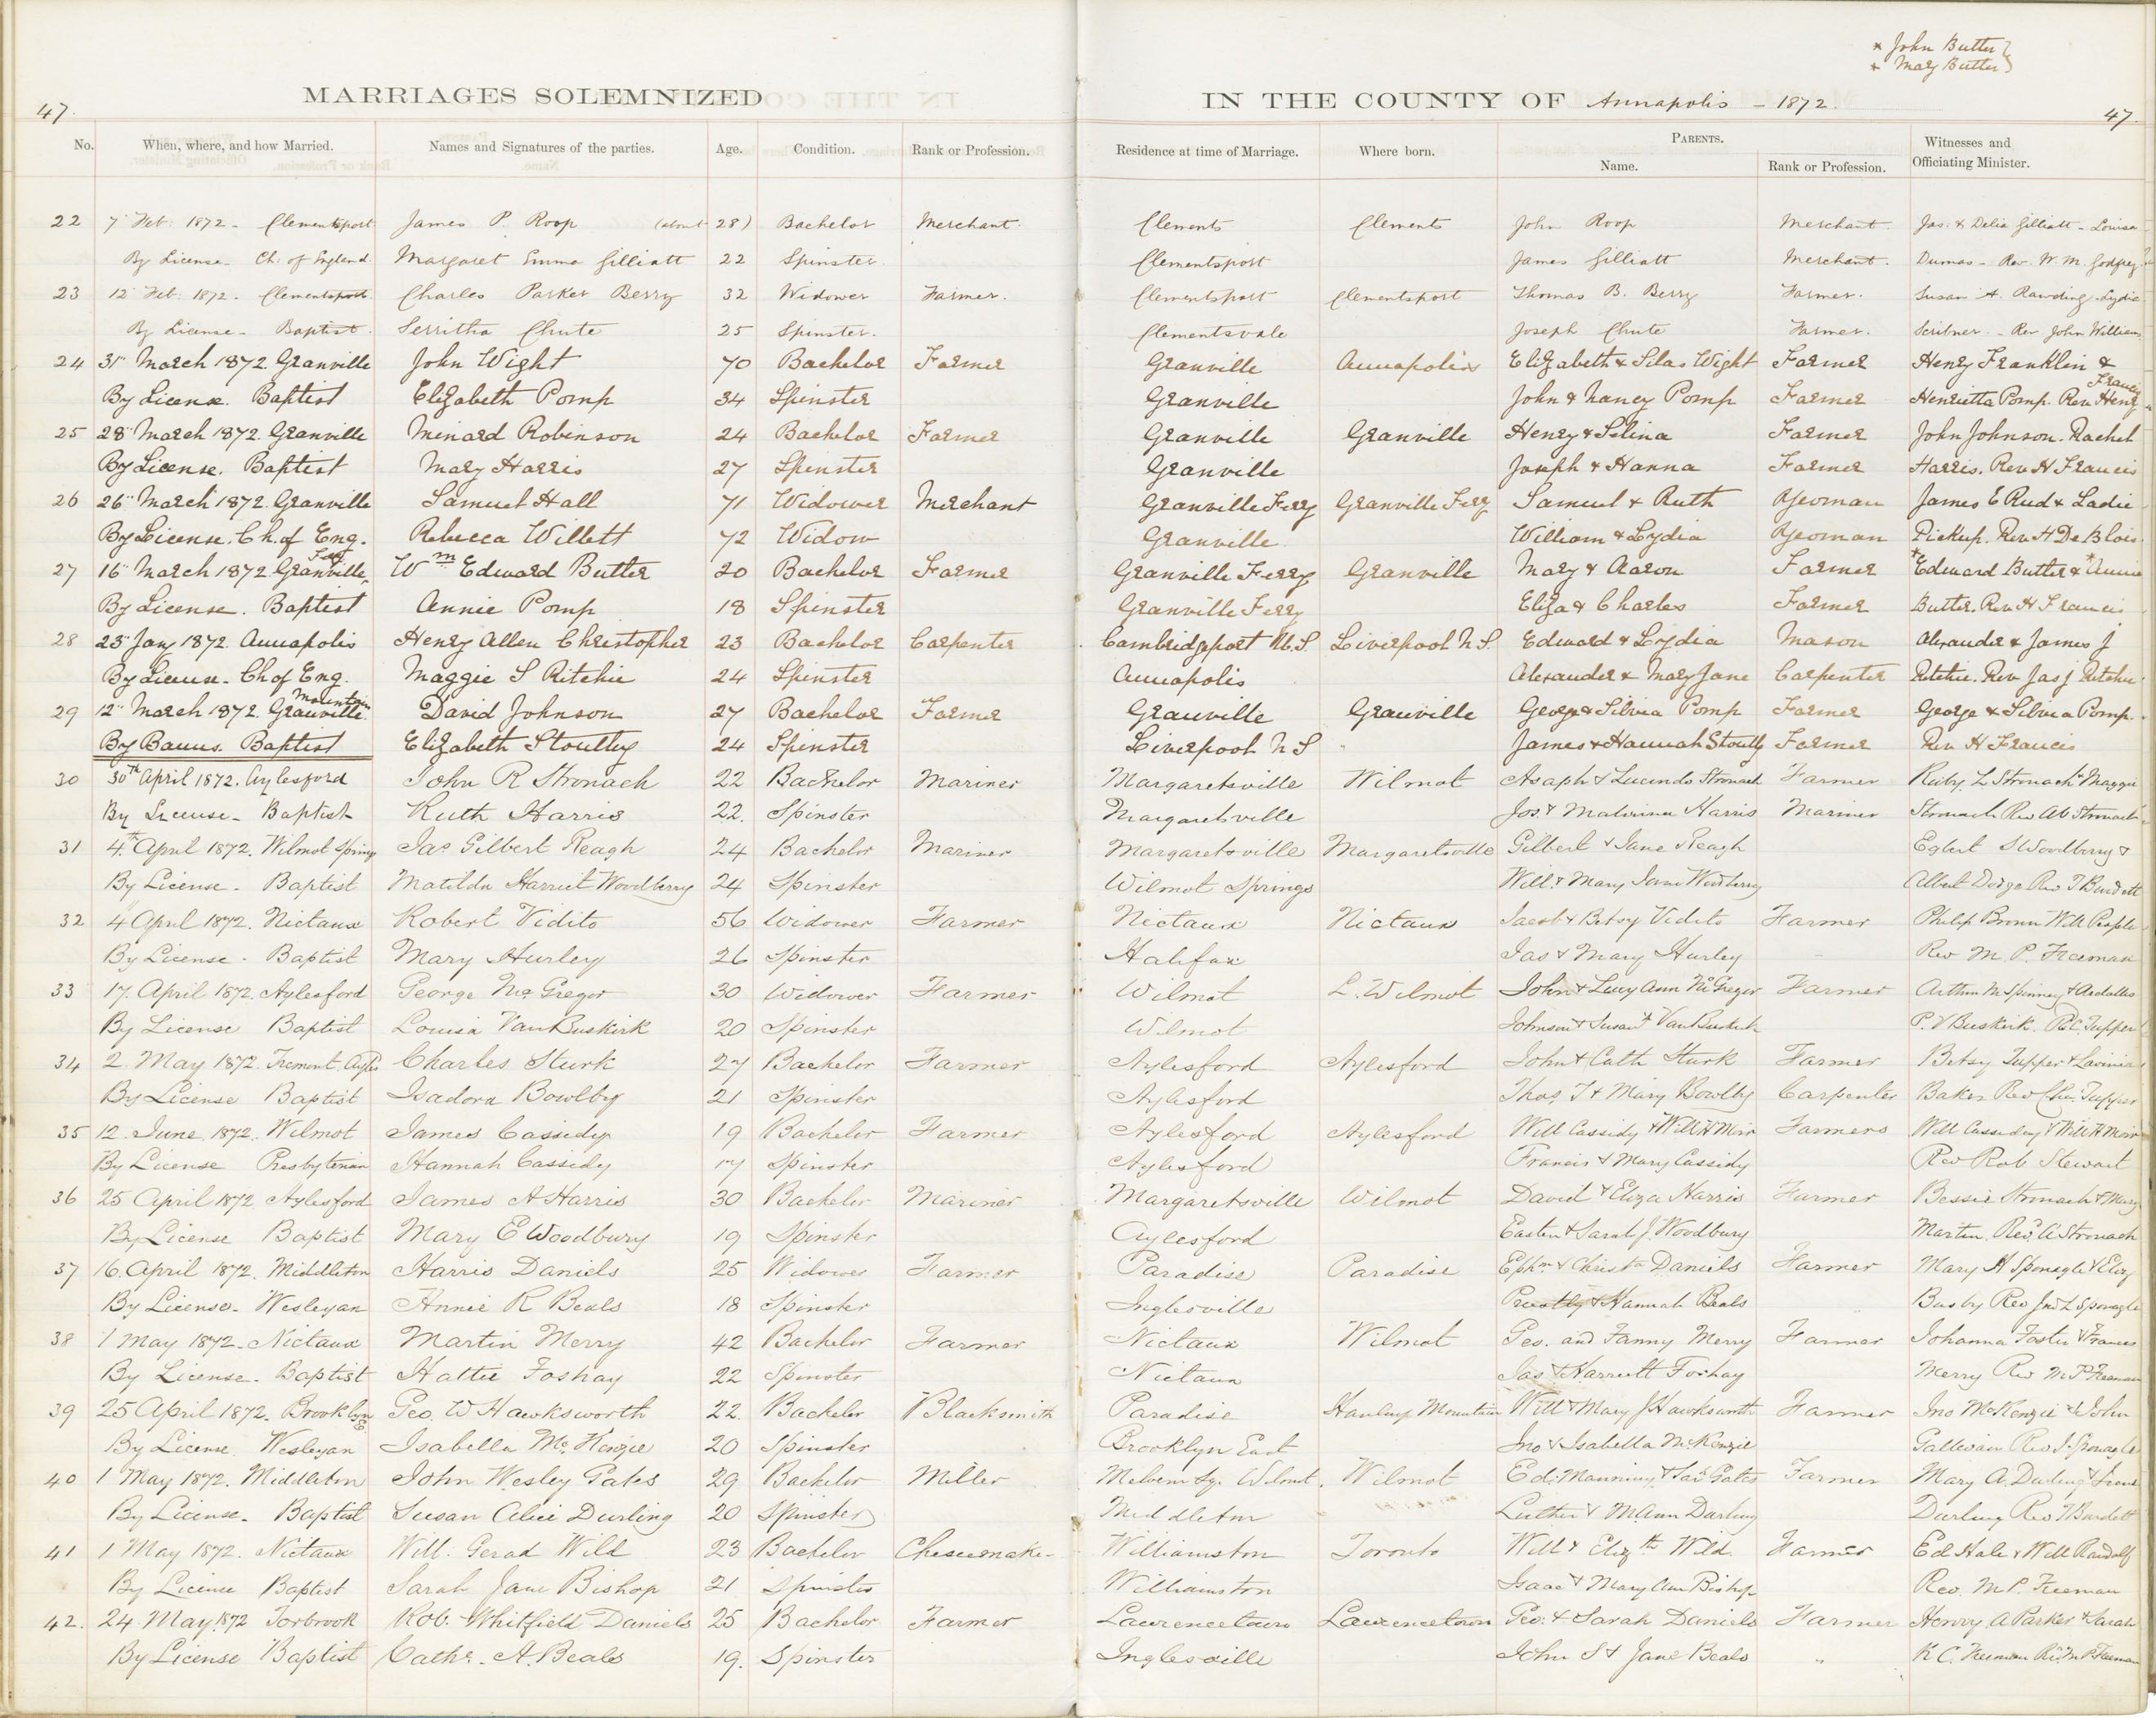 * John Butter
* Mary Butter
47. MARRIAGES SOLEMNIZED IN THE COUNTY OF Annapolis - 1872. 47.
No. When, where, and how Married. Names and Signatures of the parties. Age. Condition. Rank or Profession. Residence at time of Marriage. Where born. PARENTS. Name. Rank or Profession. Witnesses and Officiating Minister.
22 7 Feb: 1872 - Clementsport James P. Roop (about 28) Bachelor Merchant. Clements Clements John Roop Merchant Jas. & Delia Gilliatt - Louisa
By License - Ch. of England. Margaret Emma Gilliatt 22 Spinster. Clementsport James Gilliatt Merchant. Dumas - Rev. W. M. Godfrey
23 12 Feb: 1872. Clementsport. Charles Parker Berry 32 Widower Farmer. Clementsport Clementsport Thomas B. Berry Farmer. Susan A. Rawding Lydia
By License - Baptist. Serritha Chute 25 Spinster. Clementsvale Joseph Chute Farmer. Scribner - Rev John William
24 31" March 1872. Granville John Wight 70 Bachelor Farmer Granville Annapolis Elizabeth & Silas Wight Farmer Henry Franklin &
By License. Baptist Elizabeth Pomp 34 Spinster Granville John & Nancy Pomp Farmer Henrietta Pomp. Rev Henry Francis
25 28" March 1872. Granville Minard Robinson 24 Bachelor Farmer Granville Granville Henry & Selina Farmer John Johnson. Rachel
By License. Baptist Mary Harris 27 Spinster Granville Joseph & Hanna Farmer Harris. Rev H Francis
26 26" March 1872. Granville Samuel Hall 71 Widower Merchant Granville Ferry Granville Ferry Samuel & Ruth Yeoman James E Rud & Ladie
By License. Ch. of Eng. Rebecca Willett 72 Widow Granville William & Lydia Yeoman Pickup. Rev H De Blois
27 16" March 1872. Granville Fery Wm Edward Butler 20 Bachelor Farmer Granville Ferry Granville Mary & Aaron Farmer *Edward Butler & *Annie
By License. Baptist Annie Pomp 18 Spinster Granville Ferry Eliza & Charles Farmer Butler. Rev H Francis
28 25" Jany 1872. Annapolis Henry Allen Christopher 23 Bachelor Carpenter Cambridgeport U.S. Liverpool N.S. Edward & Lydia Mason Alexander & James J
By License - Ch of Eng. Maggie S Ritchie 24 Spinster Annapolis Alexander & Mary Jane Carpenter Ritchie. Rev Jas J Ritchie
29 12" March 1872. Granville Mountain David Johnson 27 Bachelor Farmer Granville Granville George & Silvia Pomp Farmer George & Silvia Pomp.
By Banns. Baptist Elizabeth Stoutley 24 Spinster Liverpool N S " James & Hannah Stoutly Farmer Rev H Francis
30 30th April 1872. Aylesford John R Stronach 22 Bachelor Mariner Margaretsville Wilmot Asaph & Lucinda Stronach Farmer Ruby L Stronach & Maggie
By License - Baptist Ruth Harris 22. Spinster Margaretsville Jos. & Malvina Harris Mariner Stronach Rev Ab Stronach
31 4th April 1872. Wilmot Springs Jas Gilbert Reagh 24 Bachelor Mariner Margaretsville Margaretsville Gilbert & Jane Reagh Egbert S Woodberry &
By License - Baptist Matilda Harriet Woodberry 24 Spinster Wilmot Springs Will. & Mary Jane Woodberry Albert Dodge Rev J Burdett
32 4 April 1872. Nictaux Robert Vidito 56 Widower Farmer Nictaux Nictaux Jacob & Betsy Vidito Farmer Philip Brown Will Peeple
By License - Baptist Mary Hurley 26 Spinster Halifax Jas & Mary Hurley Rev M. P. Freeman
33 17. April 1872. Aylesford George McGregor 30 Widower Farmer Wilmot L. Wilmot John & Lucy Ann McGregor Farmer Arthur M Spinney &
By License Baptist Louisa VanBuskirk 20 Spinster Wilmot Johnson & Susan VanBuskirk P. V Buskirk. R C. Tupper
34 2. May 1872. Tremont Ayles Charles Sturk 27 Bachelor Farmer Aylesford Aylesford John & Cath Sturk Farmer Betsy Tupper & Lavinia
By License Baptist Isadora Bowlby 21 Spinster Aylesford Thos. T & Mary Bowlby Carpenter Baker Rev Chas. Tupper
35 12. June 1872. Wilmot James Cassidy 19 Bachelor Farmer Aylesford Aylesford Will Cassidy & Will H Moir Farmers Will Cassidy & Will H Moir
By License Presbyterian Hannah Cassidy 17 Spinster Aylesford Francis & Mary Cassidy Rev Rob Stewart
36 25 April 1872 Aylesford James A Harris 30 Bachelor Mariner Margaretsville Wilmot David & Eliza Harris Farmer Bessie Stronach & Mary
By License Baptist Mary E Woodbury 19 Spinster Aylesford Easten & Sarah J. Woodbury Martin. Rev. A Stronach
37 16. April 1872. Middleton Harris Daniels 25 Widower Farmer Paradise Paradise Ephm & Christn Daniels Farmer Mary H Sponagle & Eliz
By License - Wesleyan Annie R Beals 18 Spinster Inglesville Priestly & Hannah Beals Busby Rev Jno L Sponagle
38 1 May 1872 - Nictaux Martin Merry 42 Bachelor Farmer Nictaux Wilmot Geo. and Fanny Merry Farmer Johanna Foster & Frances
By License - Baptist Hattie Foshay 22 Spinster Nictaux Jas & Harriett Foshay Merry Rev M P Freeman
39 25 April 1872. Brooklyn E. Geo. W Hawksworth 22. Bachelor Blacksmith Paradise Hanley Mountain Will & Mary J Hawksworth Farmer Jno McKenzie & John
By License. Wesleyan Isabella McKenzie 20 Spinster Brooklyn East Jno & Isabella McKenzie Rev J. Sponagle
40 1 May 1872. Middleton John Wesley Gates 29 Bachelor Miller Melvern Sq. Wilmot. Wilmot Ed. Manning & Sar Gates Farmer Mary A. Durling &
By License - Baptist Susan Alice Durling 20 Spinster Middleton Luther & M Ann Durling Durling Rev J Burdett
41 1 May 1872. Nictaux Will. Gerad Wild 23 Bachelor Cheesemaker Williamston Toronto Will & Elizth Wild. Farmer Ed Hale & Will Randolf
By License Baptist Sarah Jane Bishop 21 Spinster Williamston Isaac & Mary Ann Bishop Rev. M. P. Freeman
42. 24 May 1872 Torbrook Rob. Whitfield Daniels 25 Bachelor Farmer Lawrencetown Lawrencetown Geo. & Sarah Daniels Farmer Henry A Parker & Sarah
By License Baptist Cathr. A. Beals 19. Spinster Inglesville John S & Jane Beals " K C. Freeman Rev. M P. Freeman